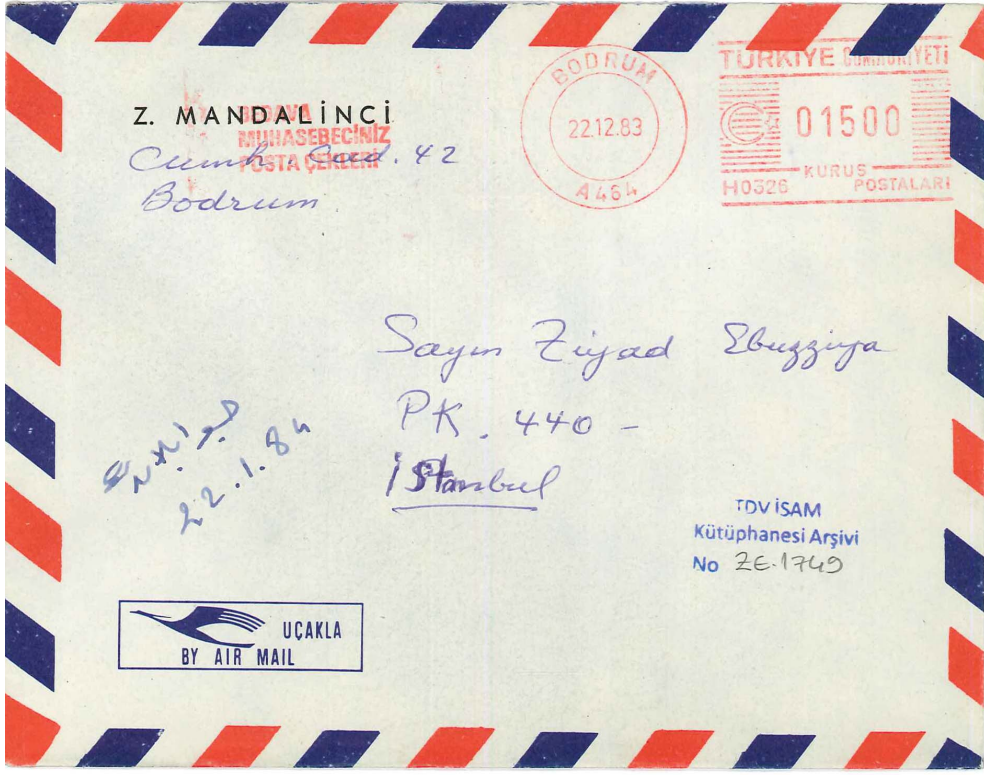 Z. MANDALİNCİ
Cumh. Cad. 42
Bodrum
BEDAVA
MUHASEBECİNİZ
POSTA ÇEKLERİ
BODRUM
22.12.83
A464
TÜRKİYE CUMHURİYETİ
01500
KURUŞ
H0326 POSTALARI
Sayın Ziyad Ebuzziya
PK. 440 -
İstanbul
22.1.84
TDV İSAM
Kütüphanesi Arşivi
No ZE-1749
UÇAKLA
BY AIR MAIL